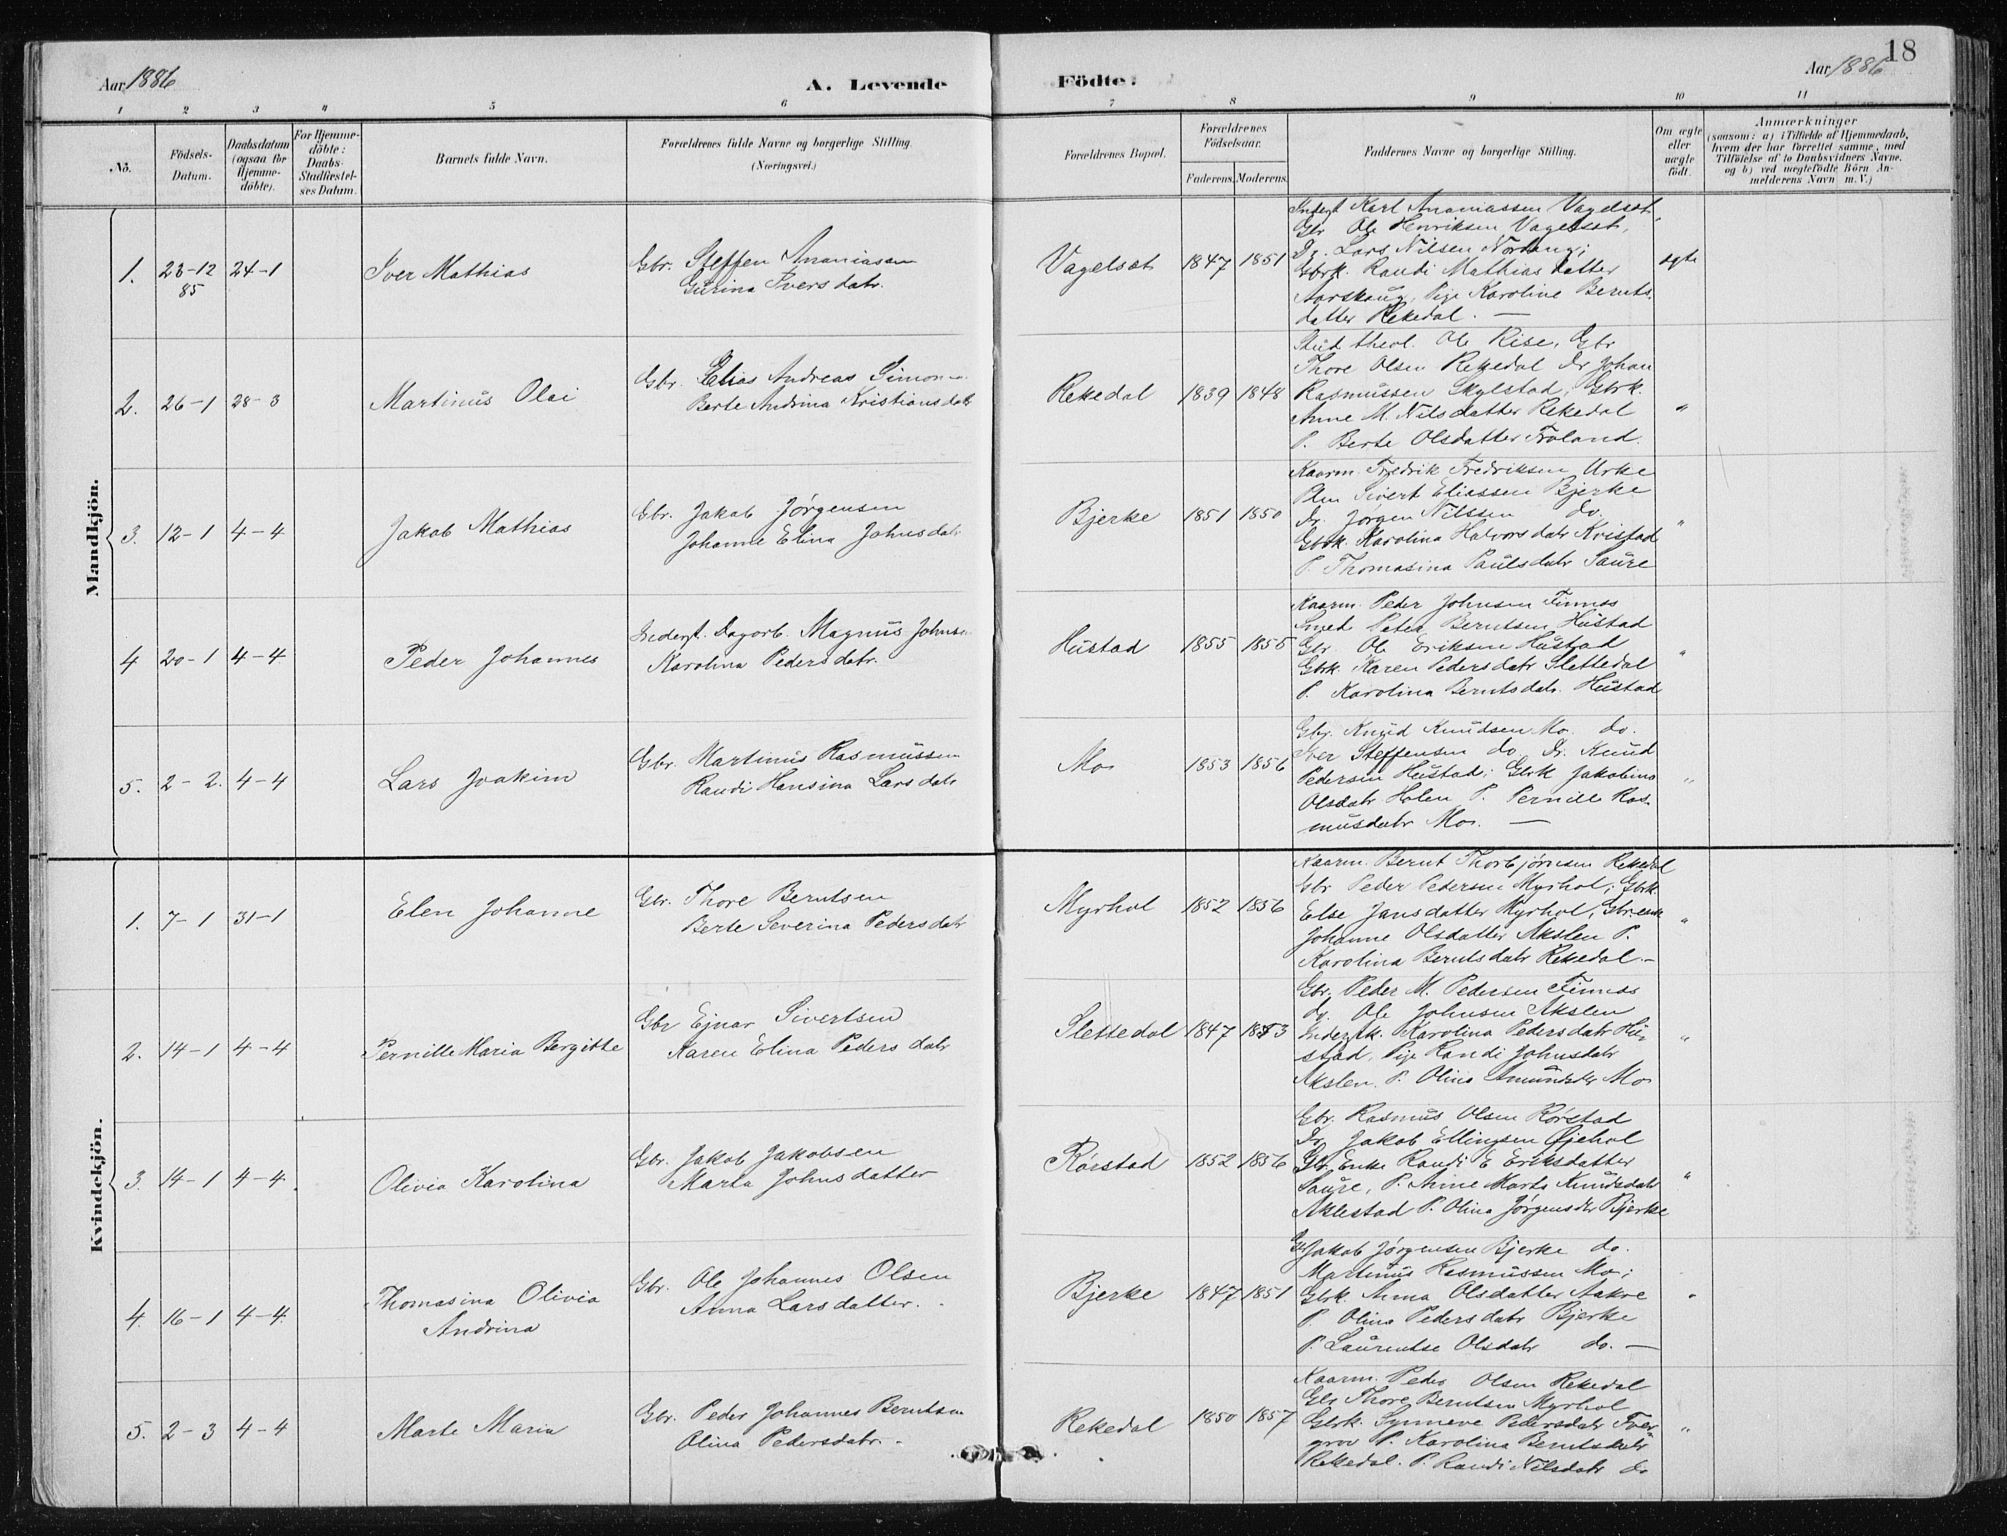 18
Aar 1886
A. Levende
Födte.
Aar 1886
1 2 3 4 5 6 7 8 9 10 11
No.
Födsels-
Datum.
Daabsdatum
(ogsaa for
Hjemme-
döbte).
For Hjemme-
döbte:
Daabs-
Stadfæstel-
ses Datum.
Barnets fulde Navn.
Forældrenes fulde Navne og borgerlige Stilling.
(Næringsvei.)
Forældrenes Bopæl.
Forældrenes
Födselsaar.
Faderens. Moderens.
Faddernes Navne og borgerlige Stilling.
Om ægte
eller
uægte
födt.
Anmærkninger
(saasom: a) i Tilfælde af Hjemmedaab,
hvem der har forrettet samme, med
Tilföielse af to Daabsvidners Navne,
og b) ved uægtefödte Börn An-
melderens Navn m. V.)
Mandkjön.
1. 23-12 24-1 Iver Mathias
85
Gbr. Steffen Ananiassen
Gurina Iversdatr.
Vagelsæt 1847 1851
Inderst Karl Ananiassen Vagelsæt,
Gbr Ole Henriksen Vagelsæt,
Dg. Lars Nilsen Nordang;
Gbrk. Randi Mathiasdatter
Aarskaug, Pige Karoline Bernts-
datter Rekedal. —
ægte
2. 26-1 28-3 Martinus Olai
Gbr. Elias Andreas Simons.
Berte Andrina Kristiansdatr
Rekedal 1839 1848
Stud. theol. Ole Rise, Gbr
Thore Olsen Rekedal Dr Johan
Rasmussen Skylstad, Gbrk.
Anne M. Nilsdatter Rekedal
P. Berte Olsdatter Froland.
"
3. 12-1 4-4 Jakob Mathias
Gbr. Jakob Jørgensen
Johanne Elina Johnsdatr
Bjerke 1851 1850
Kaarm. Fredrik Fredriksen Urke
Plm Sivert Eliassen Bjerke
Dr. Jørgen Nilssen do.
Gbrk. Karolina Halvorsdatr Kvistad
P. Thomasina Paulsdatr Saure
"
4 20-1 4-4 Peder Johannes
Inderst. Dagarb. Magnus Johns.
Karolina Pedersdatr.
Hustad 1855 1855
Kaarm. Peder Johnsen Finnes
Smed Peter Berntsen Hustad
Gbr Ole Eriksen Hustad
Gbrk. Karen Pedersdatr Slettedal
P. Karolina Berntsdatr. Hustad
"
5. 2-2. 4-4 Lars Joakim
Gbr. Martinus Rasmussen
Randi Hansina Larsdatr
Mo 1853 1856
Gbr. Knud Knudsen Mo. do.
Iver Steffensen do Dr. Knud
Pedersen Hustad; Gbrk Jakobina
Olsdatr Holen P. Pernille Ras-
musdatr Mo. —
"
Kvindekjön.
1. 7-1 31-1 Elen Johanne
Gbr. Thore Berntsen
Berte Severina Pedersdatr
Myrhol 1852 1856
Kaarm. Bernt Thorbjørnsen Rekedal
Gbr Peder Pedersen Myrhol; Gbrk.
Else Jansdatter Myrhol, Gbr.enk
Johanne Olsdatter Akslen P.
Karolina Berntsdatr Rekedal. —
"
2. 14-1 4-4 Pernille Maria Bergitte
Gbr Ejnar Sivertsen
Karen Elina Pedersdatr
Slettedal 1847 1853
Gbr. Peder M. Pedersen Finnes
Dg. Ole Johnsen Akslen
Inderstk. Karolina Pedersdatr Hu-
stad, Pige Randi Johnsdatr
Akslen. P. Olina Amundsdr Mo
"
3. 14-1 4-4. Olivia Karolina
Gbr. Jakob Jakobsen
Marta Johnsdatter
Rørstad 1852 1856
Gbr. Rasmus Olsen Rørstad
Dr. Jakob Ellingsen Øjehol
Gbr. Enke Randi E Eriksdatter
Saure, P. Anne Marta Knudsdatr
Aklestad P. Olina Jørgensdr Bjerke
"
4. 16-1 4-4. Thomasina Olivia
Andrina
Gbr. Ole Johannes Olsen
Anna Larsdatter.
Bjerke 1847 1851
Gbr Jakob Jørgensen Bjerke do.
Martinus Rasmussen Mo;
Gbrk. Anna Olsdatter Aakre
P. Olina Pedersdatr Bjerke
P. Laurentse Olsdatr do. —
"
5. 2-3 4-4 Marte Maria
Gbr. Peder Johannes Berntsen
Olina Pedersdatr.
Rekedal 1850 1857
Kaarm. Peder Olsen Rekedal
Gbr Thore Berntsen Myrhol
Gbrk. Synneve Pedersdatr Tver-
grov P. Karolina Berntsdatr
Rekedal. P. Randi Nilsdatr do
"